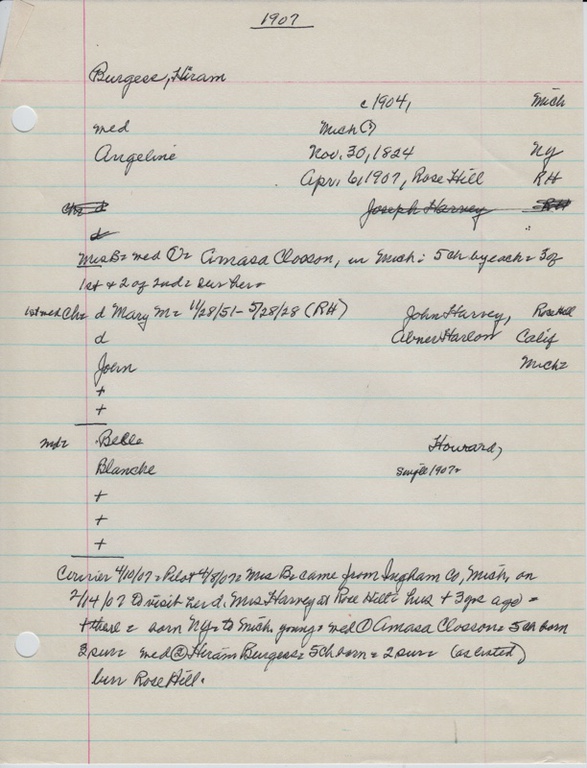 1907
Burgess, Hiram
c1904, Mich
med Mich (?)
Angeline Nov. 30, 1824 NY
Apr. 6, 1907, Rose Hill RH
Ch= d Joseph Harvey RH
d
Mrs B= med ①= Amasa Closson, in Mich: 5 ch by each = 3 of
1st + 2 of 2nd = surv her=
1st med Ch= d Mary M= 11/28/51 - 5/28/28 (RH) John Harvey, Rose Hill
d Abner Harlow Calif
John Mich=
+
+
Belle Howard,
Blanche single 1907=
+
+
+
Courier 4/10/07 = Pilot 4/8/07 = Mrs B= came from Ingham Co, Mich, on
2/14/07 to visit her d, Mrs. Harvey at Rose Hill = hus + 3 yrs ago =
+ there = born NY = to Mich young = med ① Amasa Closson = 5 ch born
3 surv= med ② Hiram Burgess = 5 ch born = 2 surv= (as listed)
burr Rose Hill.